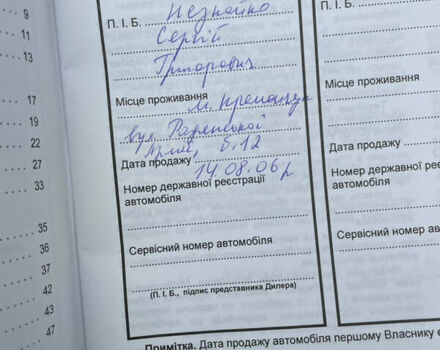 9
11
13
17
19
22
27
33
35
36
37
42
43
47
П. І. Б. Незнайко
Сергій
Григорович
Місце проживання
м. Кременчук
вул. Радянської
Армії, б. 12
Дата продажу
14.08.06р
Номер державної реєстрації
автомобіля
Сервісний номер автомобіля
(П. І. Б., підпис представника Дилера)
П. І. Б.
Місце прожива
Дата продажу
Номер державної рее
автомобіля
Сервісний номер ав
(П. І. Б., підпис пр
Примітка. Дата продажу автомобіля першому Власнику є